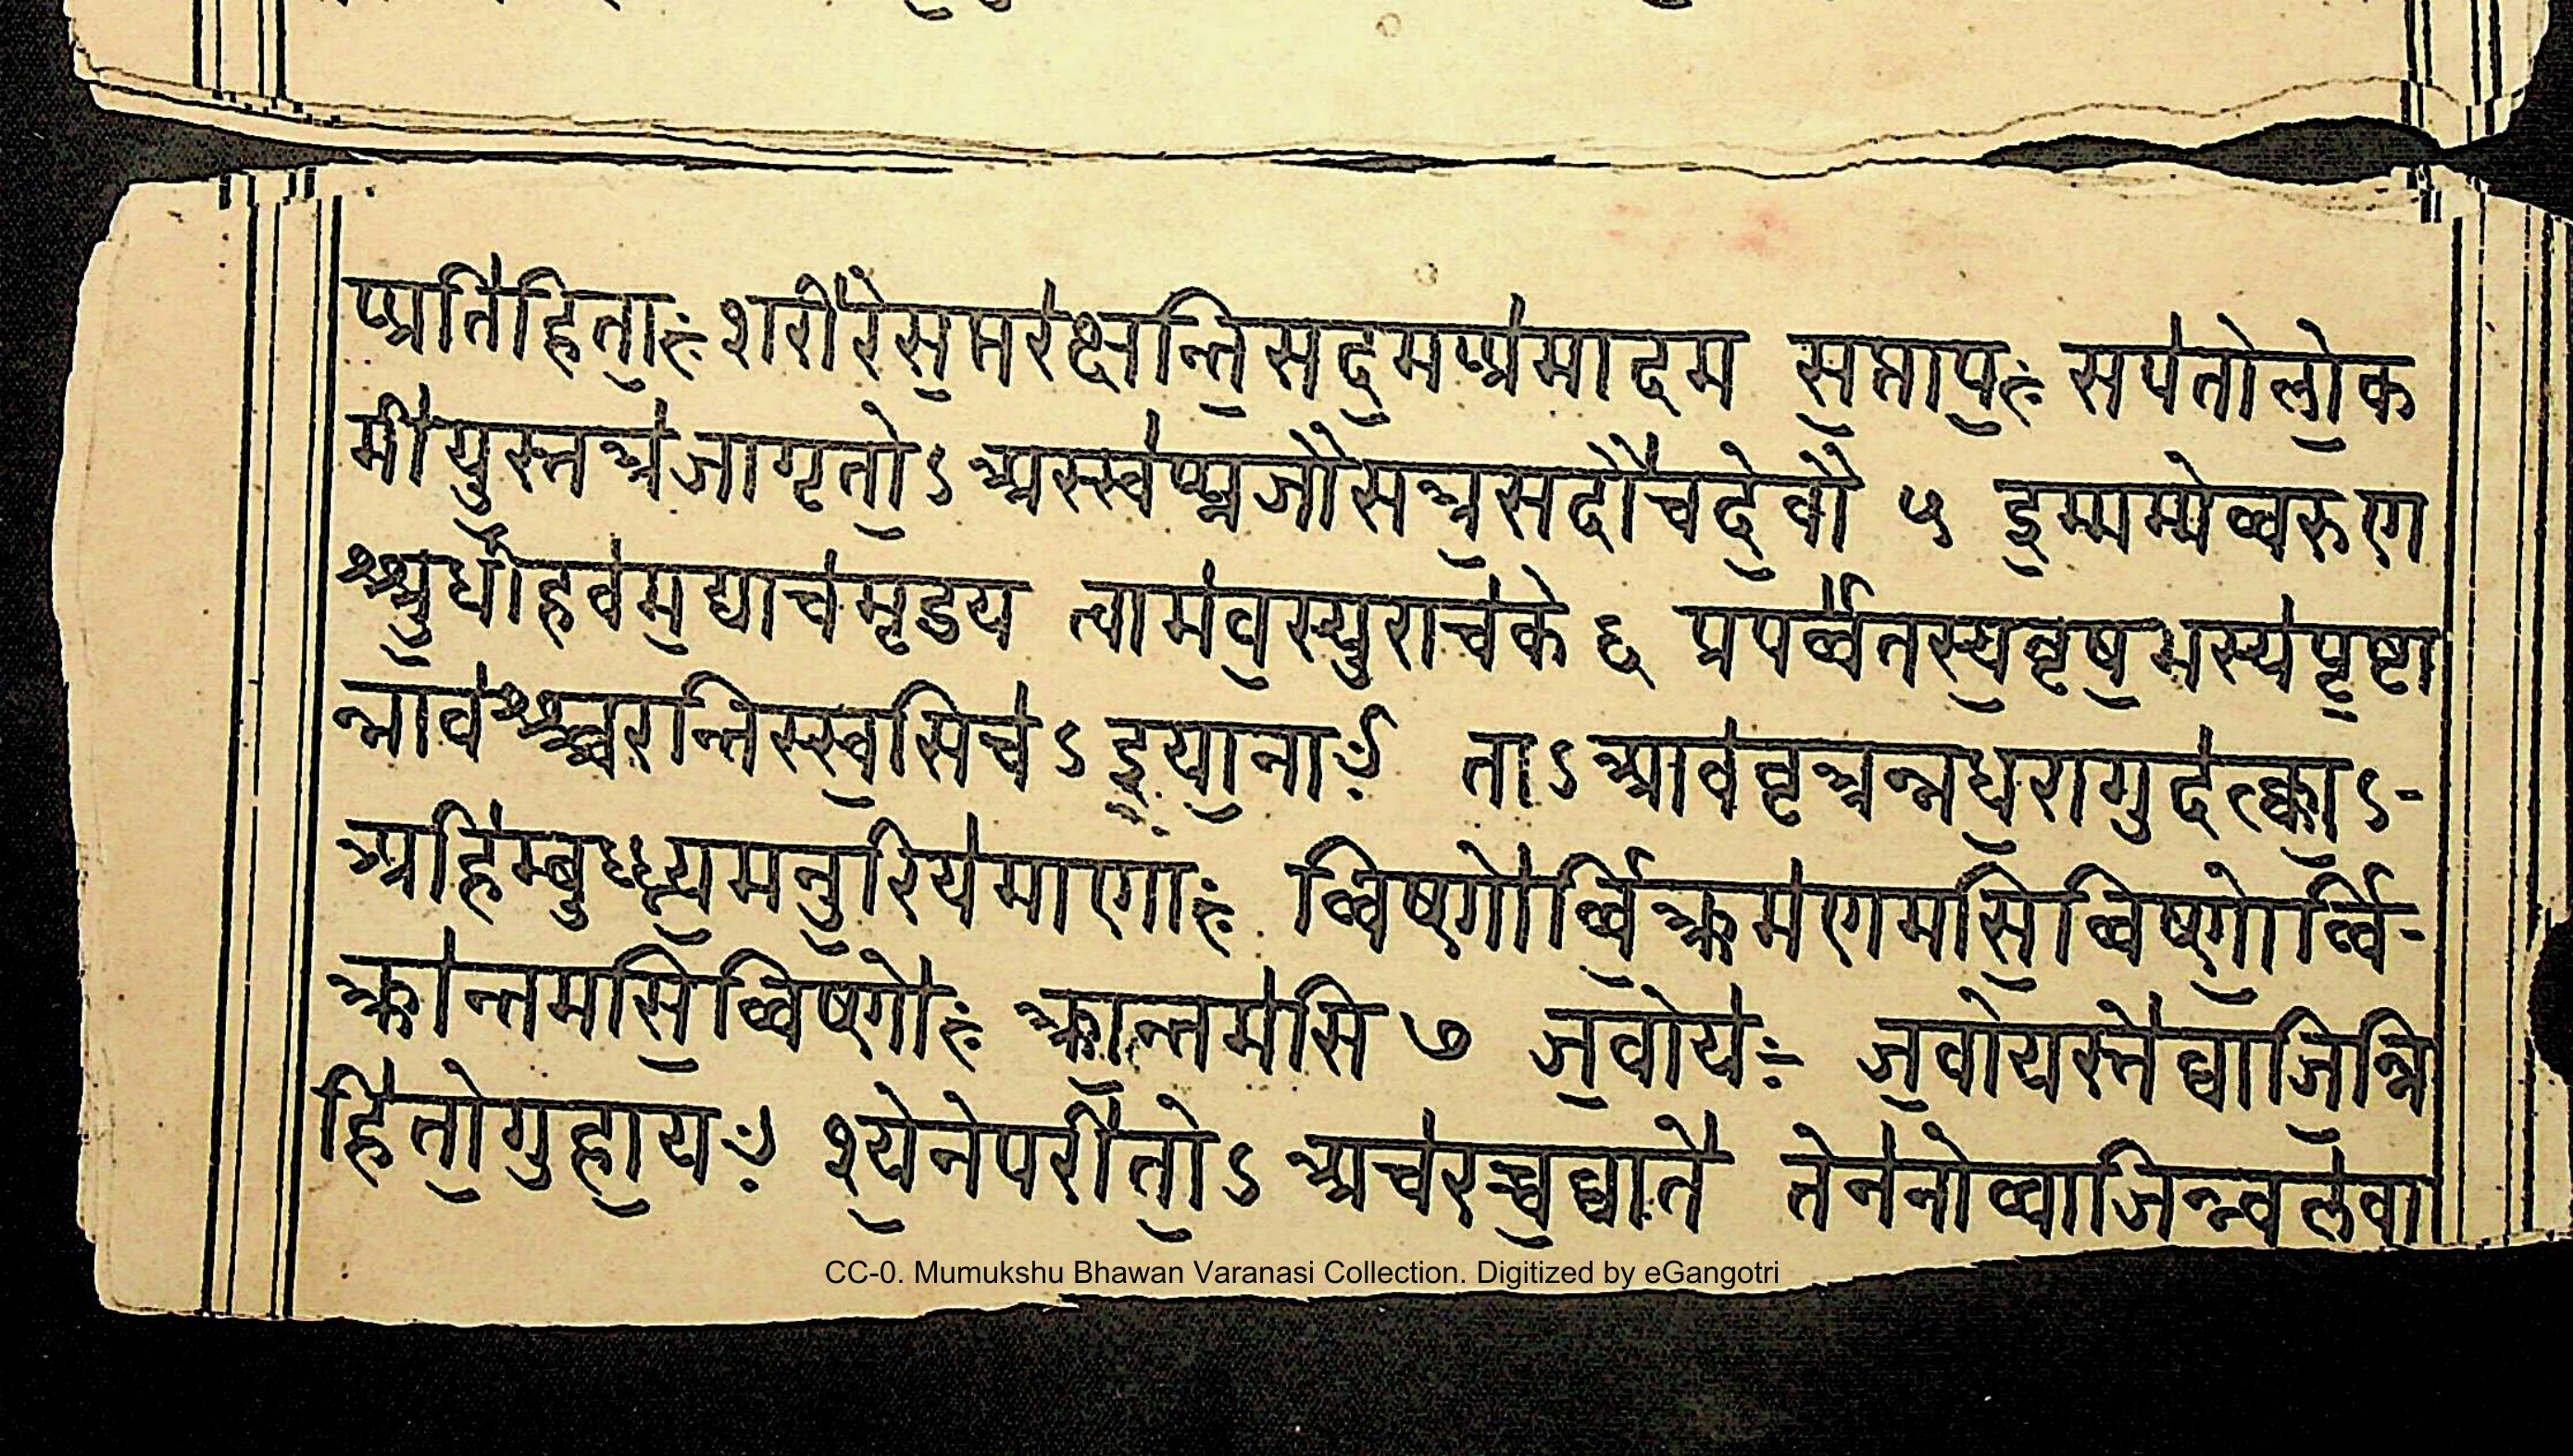 प्प्रति॑हिता॒ः शरी॑रेस॒प्तर॑क्षन्ति॒सद॒मप्प्र॑मादम स॒प्ताप॒ः सप॑तोलो॒क
मी॑युस्तत्र॑जागृतो॒ऽ अस्स्व॑प्प्नजौसत्र॒सदौ॑चदे॒वौ ५ इ॒मम्मे॑व्वरुण
श्श्रु॒धीहव॑म॒द्याच॑मृडय त्वाम॑व॒स्युराच॑के ६ प्रपर्व्व॑तस्य॒वृष॒भस्य॑पृ॒ष्टा
न्नाव॑श्श्चरन्तिस्स्व॒सिच॑ऽ इ॒या॒नाः ताऽ आव॑वृत्रन्नध॒रागुद॑त्क्का॒ऽ-
अहि॑म्बु॒ध्न्य॒मनु॒रिय॑माणाः व्विष्णो॑र्व्वि॒क्क्रम॑णमसि॒व्विष्णो॒र्व्वि-
क्क्रा॑न्तमसि॒व्विष्णो॑ः क्क्रा॒न्तम॑सि ७ ज॒वोयः॑- ज॒वोयस्ते॑व्वाजि॒न्नि
हि॑तो॒गुहा॒यः श्ये॒नेपरी॑त्तो॒ऽ अच॑रच्च॒व्वाते॑ तेन॑नोव्वाजि॒न्न्बल॑वा
CC-0. Mumukshu Bhawan Varanasi Collection. Digitized by eGangotri